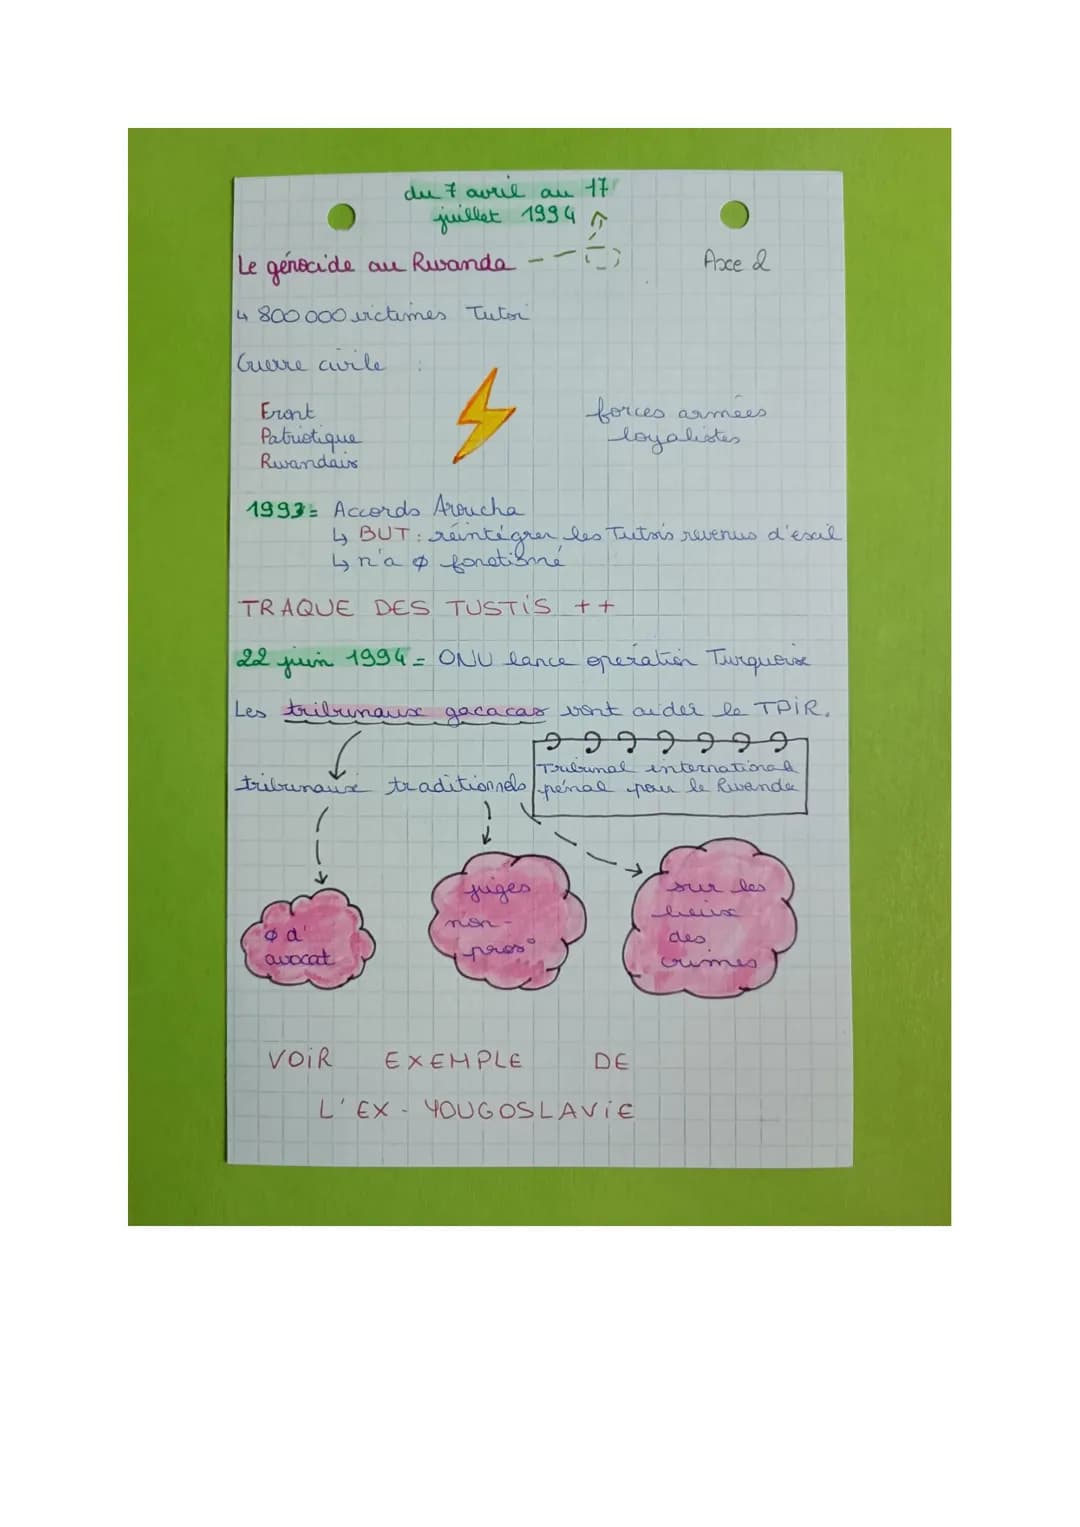 du 7 avril au 17
juillet 1994
Le génocide au Rwanda
Axe 2
↳ 800 000 victimes Tutsi
Guerre civile :
Front
Patriotique
Rwandais
forces armées
loyalistes
1993 = Accords Aroucha
↳ BUT : réintégrer les Tutsis revenus d'exil
↳ n'a ø fonctionné
TRAQUE DES TUSTIS ++
22 juin 1994 = ONU lance operation Turquoise
Les tribunaux gacacas vont aider le TPIR.
Tribunal international
pénal pour le Rwanda
tribunaux traditionnels
ø d'
avocat
juges
non-
pros°
sur les
lieux
des
crimes
VOIR EXEMPLE DE
L'EX-YOUGOSLAVIE